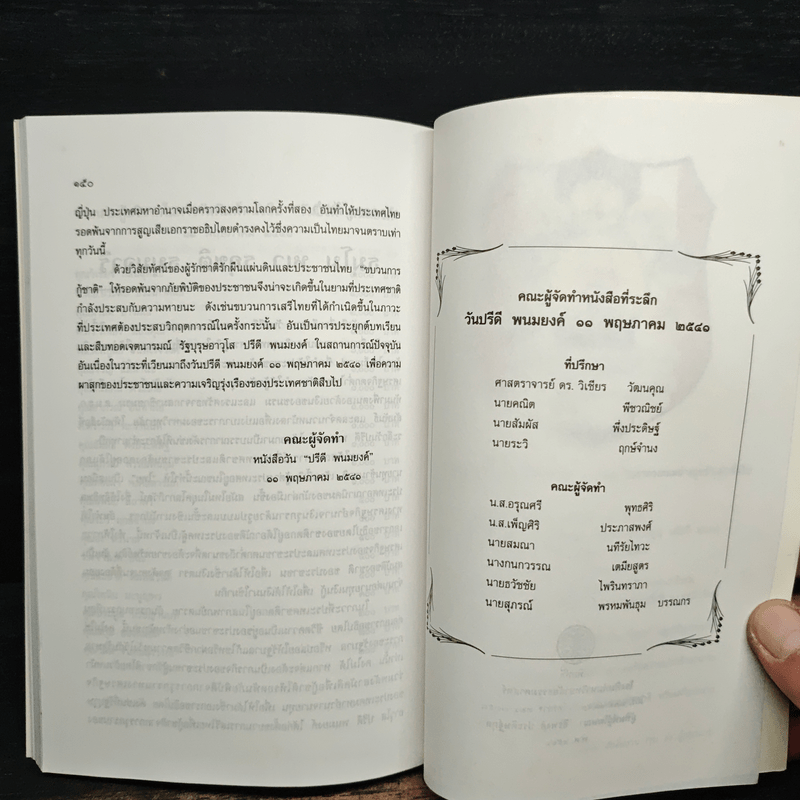 ๑๕๐
ญี่ปุ่น ประเทศมหาอำนาจเมื่อคราวสงครามโลกครั้งที่สอง อันทำให้ประเทศไทย
รอดพ้นจากการสูญเสียเอกราชอธิปไตยดำรงคงไว้ซึ่งความเป็นไทยมาจนตราบเท่า
ทุกวันนี้
ด้วยวิสัยทัศน์ของผู้รักชาติรักผืนแผ่นดินและประชาชนไทย "ขบวนการ
กู้ชาติ" ให้รอดพ้นจากภัยพิบัติของประชาชนจึงน่าจะเกิดขึ้นในยามที่ประเทศชาติ
กำลังประสบกับความหายนะ ดังเช่นขบวนการเสรีไทยที่ได้กำเนิดขึ้นในภาวะ
ที่ประเทศต้องประสบวิกฤตการณ์ในครั้งกระนั้น อันเป็นการประยุกต์บทเรียน
และสืบทอดเจตนารมณ์ รัฐบุรุษอาวุโส ปรีดี พนมยงค์ ในสถานการณ์ปัจจุบัน
อันเนื่องในวาระที่เวียนมาถึงวันปรีดี พนมยงค์ ๑๑ พฤษภาคม ๒๕๔๐ เพื่อความ
ผาสุกของประชาชนและความเจริญรุ่งเรืองของประเทศชาติสืบไป
คณะผู้จัดทำ
หนังสือวัน "ปรีดี พนมยงค์"
๑๑ พฤษภาคม ๒๕๔๐
คณะผู้จัดทำหนังสือที่ระลึก
วันปรีดี พนมยงค์ ๑๑ พฤษภาคม ๒๕๔๑
ที่ปรึกษา
ศาสตราจารย์ ดร. วิเชียร วัฒนคุณ
นายคณิต พีชวณิชย์
นายสัมผัส พึ่งประดิษฐ์
นายระวิ ฤกษ์จำนง
คณะผู้จัดทำ
น.ส.อรุณศรี พุทธศิริ
น.ส.เพ็ญศิริ ประภาสพงศ์
นายสมณา นทีรัยไทวะ
นางกนกวรรณ เตมียสูตร
นายธวัชชัย ไพรินทราภา
นายสุภรณ์ พรหมพันธุม บรรณกร